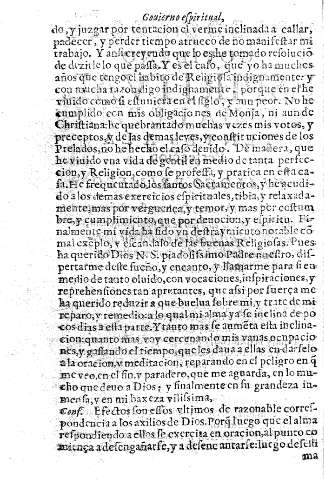 Gouierno espiritual,
do, y juzgar por tentacion el verme inclinada a callar,
padecer, y perder tiempo a trueco de no manifestar mi
trabajo. Y ansi creyendo que lo es, he tomado resoluciõ
de dezirle lo que passa. Y es el caso, que yo ha muchos
años que tengo el habito de Religiosa indignamente: y
con mucha razon digo indignamente, porque en el he
viuido como si estuuiera en el siglo, y aun peor. No he
cumplido con mis obligaciones de Monja, ni aun de
Christiana: he quebrantado muchas vezes mis votos, y
preceptos, y de las demas leyes, y constituciones de los
Prelados, no he hecho el caso deuido. De manera, que
he viuido vna vida de gentil en medio de tanta perfec-
cion, y Religion, como se professa, y pratica en esta ca-
sa. He frequentado los santos Sacramentos, y he acudi-
do a los demas exercicios espirituales, tibia, y relaxada-
mente, mas por verguença, y temor, y mas por costum-
bre, y cumplimiento, que por deuocion, y espiritu. Fi-
nalmente mi vida ha sido vn destraymiento notable, cõ
mal exemplo, y escandalo de las buenas Religiosas. Pues
ha querido Dios N. S. piadosissimo Padre nuestro, dis-
pertarme deste sueño, y encanto, y llamarme para si en
medio de tanto oluido, con vocaciones, inspiraciones, y
reprehensiones tan apretantes, que assi por fuerça me
ha querido reduzir a que buelua sobre mi, y trate de mi
reparo, y remedio: a lo qual mi alma ya se inclina de po-
cos dias a esta parte. Y tanto mas se aumẽta esta inclina-
cion: quanto mas voy cercenando mis vanas ocupacio-
nes, y gastando el tiempo, que les daua a ellas en darselo
a la oracion, y meditacion, reparando en el peligro en q̃
me veo, en el fin, y paradero, que me aguarda, en lo mu-
cho que deuo a Dios; y finalmente en su grandeza in-
mensa, y en mi baxeza vilissima.
Conf. Efectos son essos vltimos de razonable corres-
pondencia a los auxilios de Dios. Porq̃ luego que el alma
respondiendo a ellos se exercita en oracion, al punto co
miença a desengañarse, y a desencantarse: luego desesti
ma